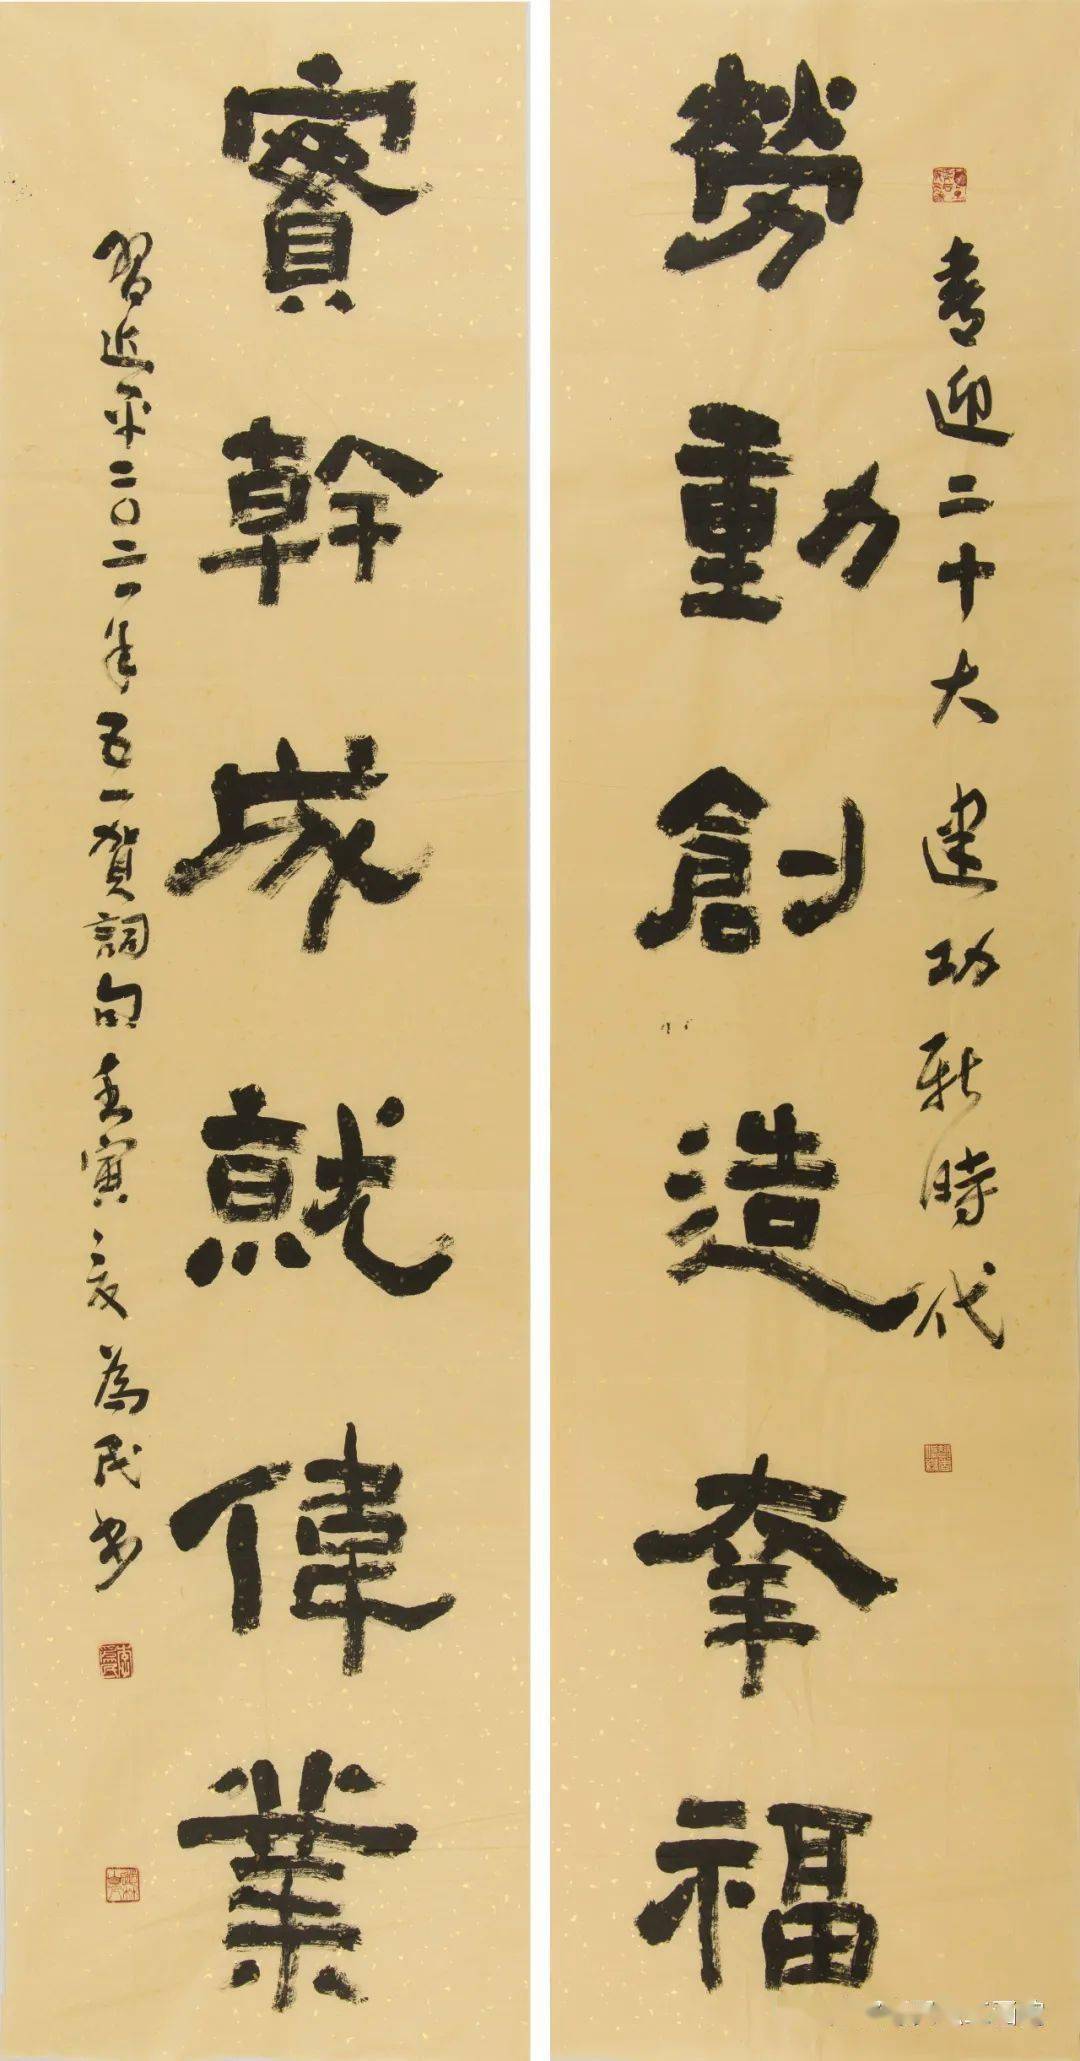 喜迎二十大建功新時代
勞動創造幸福
實幹成就偉業
習近平二〇二一年五一賀詞句壬寅之夏為民書